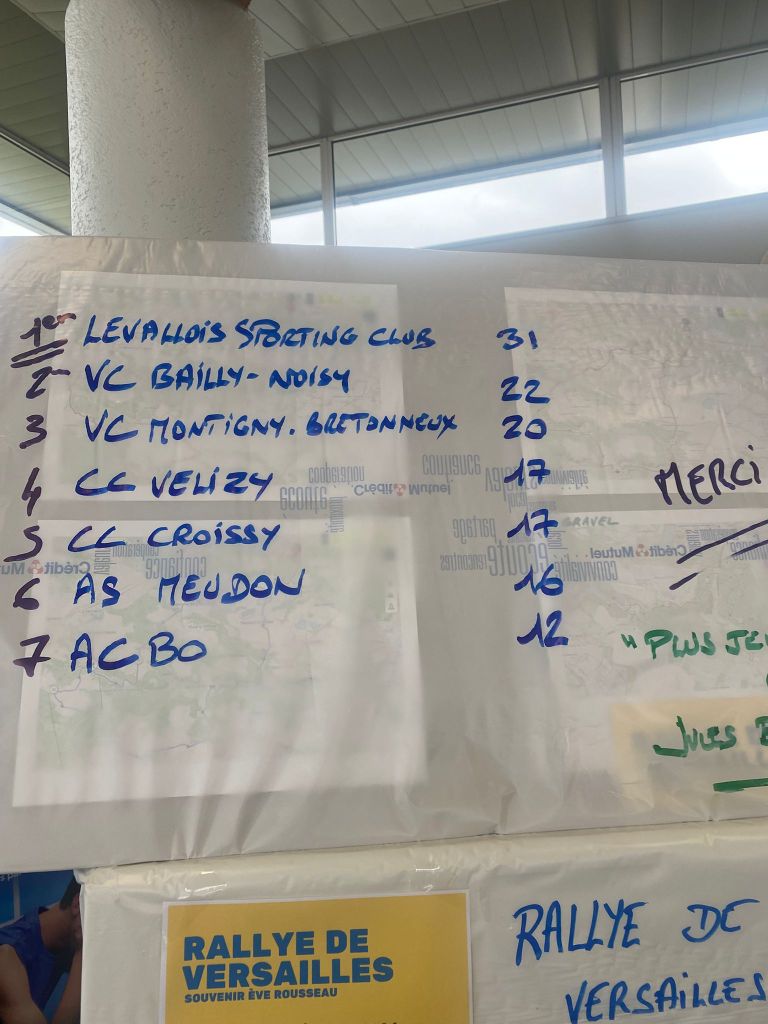 1er LEVALLOIS SPORTING CLUB 31
2 VC BAILLY-NOISY 22
3 VC MONTIGNY.BRETONNEUX 20
4 CC VELIZY 17
5 CC CROISSY 17
6 AS MEUDON 16
7 ACBO 12
MERCI
"PLUS JE
JULES
coopération
confiance
écoute
Crédit Mutuel
partage
convivialité
rencontres
GRAVEL
RALLYE DE
VERSAILLES
SOUVENIR ÈVE ROUSSEAU
RALLYE DE
VERSAILLES